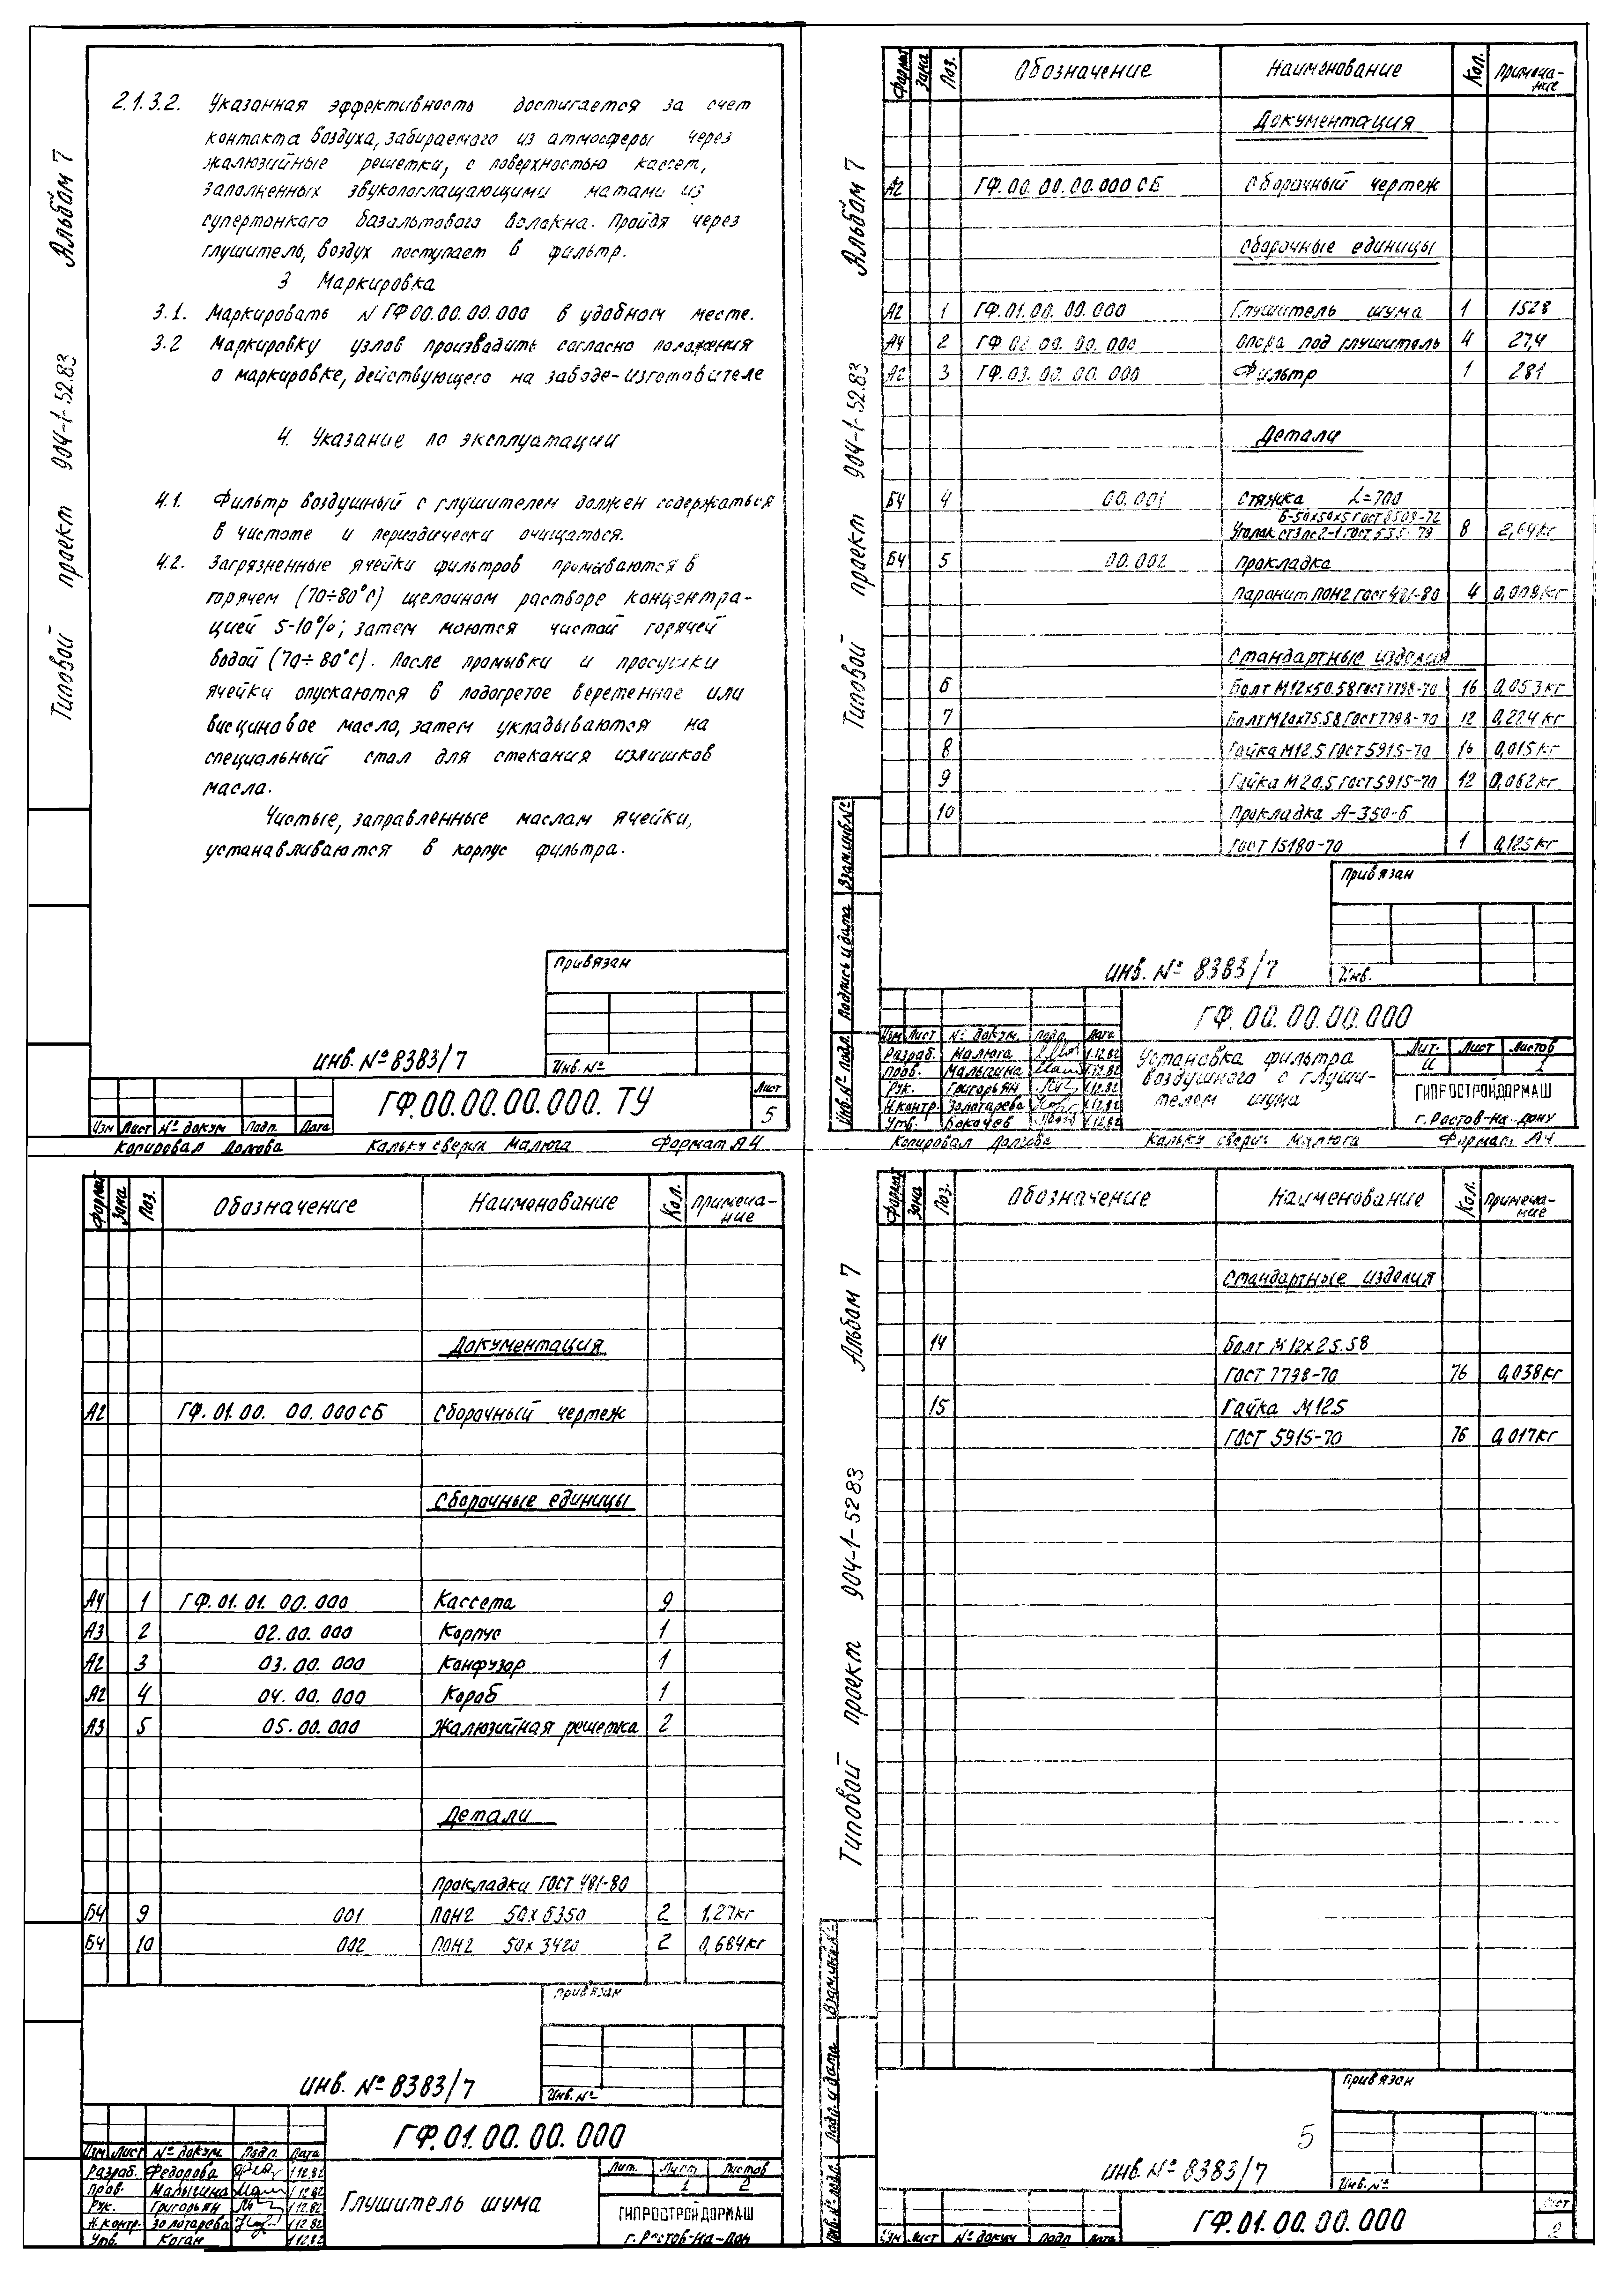 Альбом 7
Типовой проект 904-1-52.83
2.1.3.2. Указанная эффективность достигается за счет
контакта воздуха, забираемого из атмосферы через
жалюзийные решетки, с поверхностью кассет,
заполненных звукопоглащающими матами из
супертонкого базальтового волокна. Пройдя через
глушитель, воздух поступает в фильтр.
3 Маркировка
3.1. Маркировать N ГФ 00.00.00.000 в удобном месте.
3.2 Маркировку узлов производить согласно положения
о маркировке, действующего на заводе-изготовителе
4. Указание по эксплуатации
4.1. Фильтр воздушный с глушителем должен содержаться
в чистоте и периодически очищаться.
4.2. Загрязненные ячейки фильтров промываются в
горячем (70÷80°С) щелочном растворе концентра-
цией 5-10%; затем моются чистой горячей
водой (70÷80°С). После промывки и просушки
ячейки опускаются в подогретое веретенное или
висциновое масло, затем укладываются на
специальный стол для стекания излишков
масла.
Чистые, заправленные маслом ячейки,
устанавливаются в корпус фильтра.
Привязан
Инв. №
инв. № 8383/7
ГФ.00.00.00.000. ТУ
Лист
5
Изм Лист № докум Подп. Дата
Копировал Долгова Кальку сверил Малюга Формат А4
Альбом 7
Типовой проект 904-1-52.83
Формат Зона Поз. Обозначение Наименование Кол. Примеча-
ние
Документация
А2 ГФ.00.00.00.000 СБ Сборочный чертеж
Сборочные единицы
А2 1 ГФ.01.00.00.000 Глушитель шума 1 1528
А4 2 ГФ.02.00.00.000 Опора под глушитель 4 27,4
А2 3 ГФ.03.00.00.000 Фильтр 1 281
Детали
Б4 4 00.001 Стяжка L=700
Уголок Б-50х50х5 ГОСТ 8509-72
Ст3пс2-1 ГОСТ 535-79 8 2,64кг
Б4 5 00.002 Прокладка
Паронит ПОН2 ГОСТ 481-80 4 0,008кг
Стандартные изделия
6 Болт М12х50.58 ГОСТ 7798-70 16 0,053кг
7 Болт М20х75.58 ГОСТ 7798-70 12 0,224кг
8 Гайка М12.5 ГОСТ 5915-70 16 0,015кг
9 Гайка М20.5 ГОСТ 5915-70 12 0,062кг
10 Прокладка А-350-6
ГОСТ 15180-70 1 0,125кг
Привязан
Инв.
инв. № 8383/7
Инв. № подл. Подпись и дата Взам.инв.№
ГФ.00.00.00.000
Изм Лист № докум. Подп. Дата
Разраб. Малюга 1.12.82
Пров. Малыгина 1.12.82
Рук. Григорьян 1.12.82
Н.контр. Золотарева 1.12.82
Утв. 1.12.82
Установка фильтра
воздушного с глуши-
телем шума
Лит. Лист Листов
И 1
ГИПРОСТРОЙДОРМАШ
г. Ростов-на-Дону
Копировал Долгова Кальку сверил Малюга Формат А4
Формат Зона Поз. Обозначение Наименование Кол. Примеча-
ние
Документация
А2 ГФ.01.00.00.000 СБ Сборочный чертеж
Сборочные единицы
А4 1 ГФ.01.01.00.000 Кассета 9
А3 2 02.00.000 Корпус 1
А2 3 03.00.000 Конфузор 1
А2 4 04.00.000 Короб 1
А3 5 05.00.000 Жалюзийная решетка 2
Детали
Прокладки ГОСТ 481-80
Б4 9 001 ПОН2 50х6350 2 1,27кг
Б4 10 002 ПОН2 50х3420 2 0,684кг
Привязан
Инв. №
инв. № 8383/7
ГФ.01.00.00.000
Изм Лист № докум. Подп. Дата
Разраб. Федорова 1.12.82
Пров. Малыгина 1.12.82
Рук. Григорьян 1.12.82
Н.контр. Золотарева 1.12.82
Утв. Коган 1.12.82
Глушитель шума
Лит. Лист Листов
1 2
ГИПРОСТРОЙДОРМАШ
г. Ростов-на-Дон
Альбом 7
Типовой проект 904-1-52 83
Формат Зона Поз. Обозначение Наименование Кол. Примеча-
ние
Стандартные изделия
14 Болт М12х25.58
ГОСТ 7798-70 76 0,038кг
15 Гайка М12.5
ГОСТ 5915-70 76 0,017кг
Привязан
Инв. №
5
инв. № 8383/7
Инв. № подл. Подп. и дата Взам.инв.№
ГФ.01.00.00.000
Лист
2
Изм Лист № докум Подп Дата